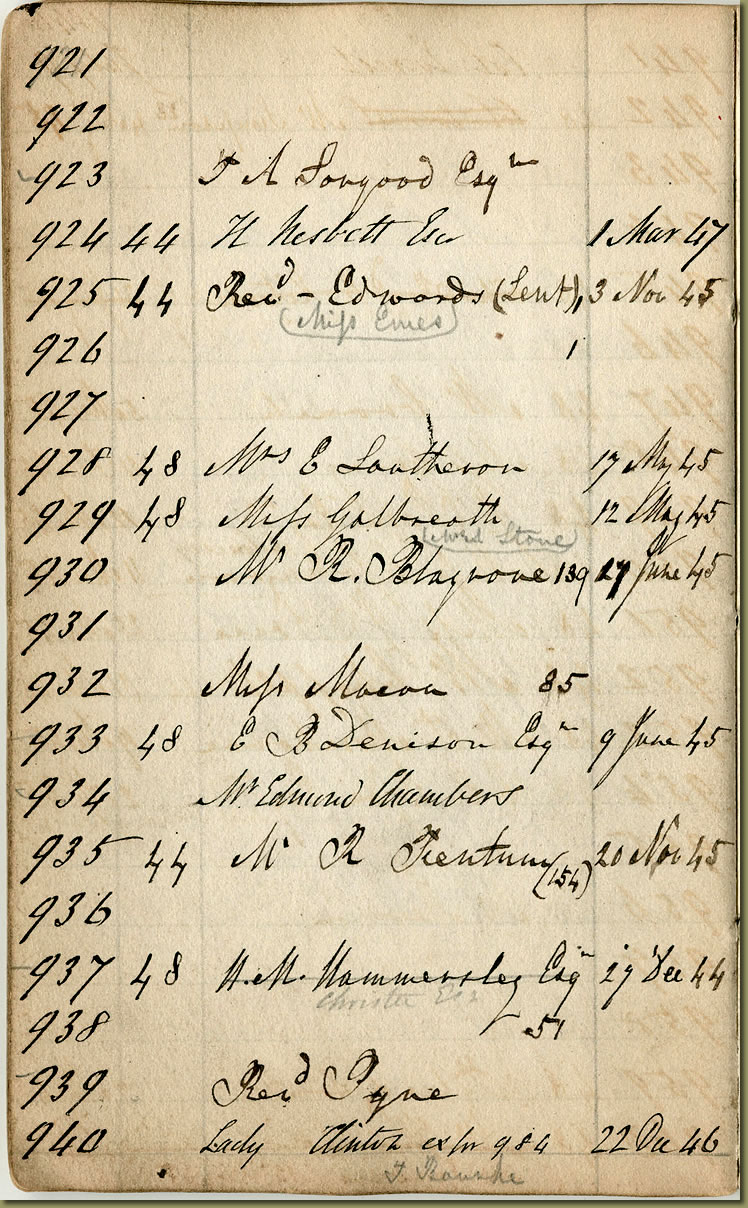 921
922
923 T A Sorgood Esqr
924 44 H Nesbett Esr 1 Mar 47
925 44 Revd - Edwards (Lent), 3 Nov 45
(Miss Emes)
926 1
927
928 48 Mrs E Southeron 17 May 45
929 48 Miss Galbreath 12 May 45
Stone
930 Mr R. Blagrove 139 27 June 45
931
932 Miss Macon 85
933 48 E B Denison Esqr 9 June 45
934 Mr Edmund Chambers
935 44 Mr R (154) 20 Nov 45
936
937 48 H. M. Hammersley Esqr 29 Dec 44
Christie Esr
938 51
939 Revd Pyne
940 Lady Clinton ex for 984 22 Dec 46
T. Bourke